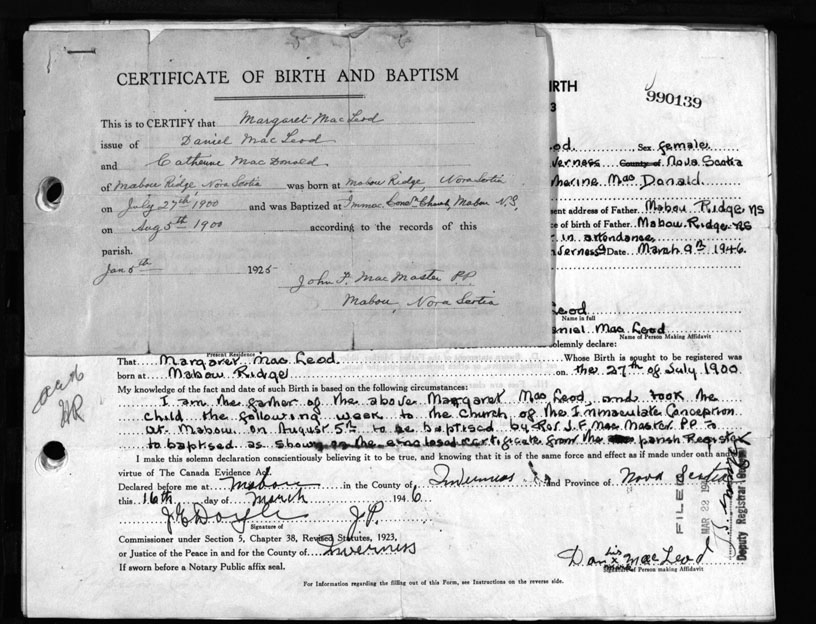 CERTIFICATE OF BIRTH AND BAPTISM
This is to CERTIFY that Margaret MacLeod
issue of Daniel MacLeod
and Catherine MacDonald
of Mabou Ridge, Nova Scotia was born at Mabou Ridge, Nova Scotia
on July 27th 1900 and was Baptized at Immac. Conc. Church, Mabou N.S.
on Aug 5th 1900 according to the records of this
parish.
Jan 5th 1925
John F. MacMaster P.P.
Mabou, Nova Scotia
IRTH
990139
3
od Sex female
verness County of Nova Scotia
herine Mac Donald
sent address of Father Mabou Ridge NS
ce of birth of Father Mabou Ridge NS
in attendance
nverness Date March 9th 1946
Leod
Name in full
aniel Mac Leod
Present Residence
Name of Person Making Affidavit
olemnly declare:
That Margaret Mac Leod Whose Birth is sought to be registered was
born at Mabou Ridge on the 27th of July 1900
My knowledge of the fact and date of such Birth is based on the following circumstances:
I am the father of the above Margaret Mac Leod, and took the
child the following week to the Church of the Immaculate Conception
at Mabou on August 5th to be baptised by Rev J.F. Mac Master P.P.
to baptised as shown in the enclosed certificate from the parish Register
I make this solemn declaration conscientiously believing it to be true, and knowing that it is of the same force and effect as if made under oath and
virtue of The Canada Evidence Act.
Declared before me at Mabou in the County of Inverness and Province of Nova Scotia
this 16th day of March 1946
J.P.
Signature of
Commissioner under Section 5, Chapter 38, Revised Statutes, 1923,
or Justice of the Peace in and for the County of Inverness
If sworn before a Notary Public affix seal.
FILED
MAR 22 194
Deputy Registrar General
Dan his x mark MacLeod
Signature of Person making Affidavit
For Information regarding the filling out of this Form, see Instructions on the reverse side.